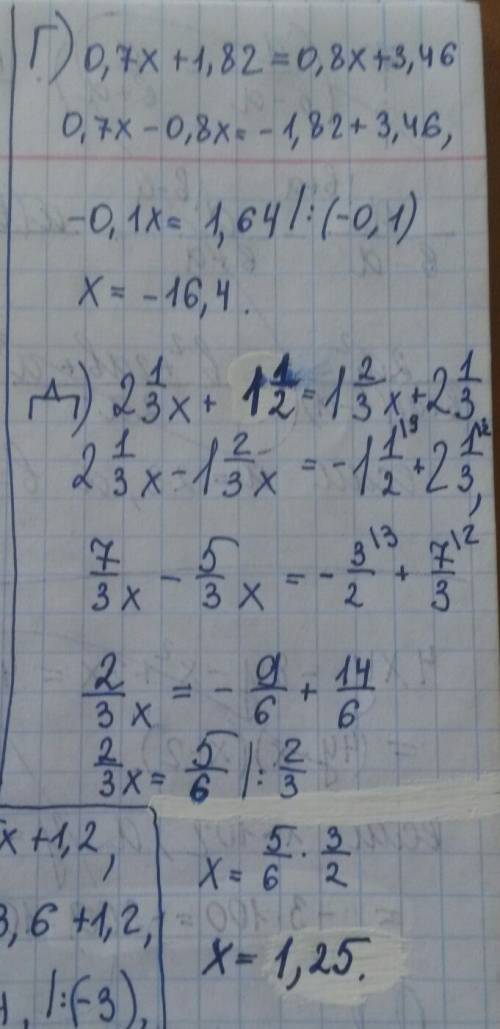 Г) 0,7x + 1,82 = 0,8x + 3,46
0,7x - 0,8x = - 1,82 + 3,46,
-0,1x = 1,64 /: (-0,1)
x = -16,4.
Д) 2 1/3 x + 1 1/2 = 1 2/3 x + 2 1/3
2 1/3 x - 1 2/3 x = -1 1/2 \3 + 2 1/3 \2,
7/3 x - 5/3 x = - 3/2 \3 + 7/3 \2
2/3 x = - 9/6 + 14/6
2/3 x = 5/6 /: 2/3
x = 5/6 · 3/2
x = 1,25.
x + 1,2,
3,6 + 1,2,
/: (-3),